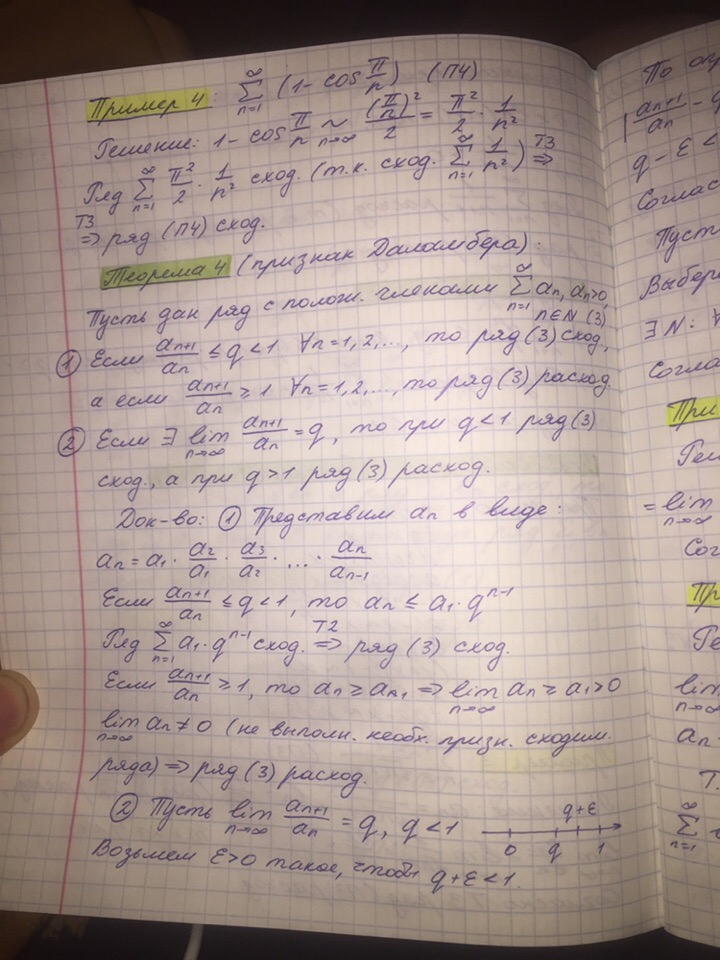 Пример 4: ∑_{n=1}^{∞} (1 - cos π/n) (П4)
Решение: 1 - cos π/n ~_{n→∞} (π/n)²/2 = π²/2 · 1/n²
Ряд ∑_{n=1}^{∞} π²/2 · 1/n² сход. (т.к. сход. ∑_{n=1}^{∞} 1/n²) T3⇒
T3⇒ ряд (П4) сход.
Теорема 4 (признак Даламбера):
Пусть дан ряд с полож. членами ∑_{n=1}^{∞} an, an>0,
n∈N (3)
① Если an+1/an ≤ q < 1 ∀n=1,2,..., то ряд (3) сход.,
а если an+1/an ≥ 1 ∀n=1,2,..., то ряд (3) расход.
② Если ∃ lim_{n→∞} an+1/an = q, то при q<1 ряд (3)
сход., а при q>1 ряд (3) расход.
Док-во: ① Представим an в виде:
an = a1 · a2/a1 · a3/a2 · ... · an/an-1
Если an+1/an ≤ q < 1, то an ≤ a1 · q^{n-1}
Ряд ∑_{n=1}^{∞} a1 · q^{n-1} сход. T2⇒ ряд (3) сход.
Если an+1/an ≥ 1, то an ≥ an-1 ⇒ lim_{n→∞} an ≥ a1 > 0
lim_{n→∞} an ≠ 0 (не выполн. необх. призн. сходим.
ряда) ⇒ ряд (3) расход.
② Пусть lim_{n→∞} an+1/an = q, q<1
q+ε
0 q 1
Возьмем ε>0 такое, чтобы q+ε<1.
По
|an+1/an -
q-ε<
Соглас
Пусть
Выбер
∃ N:
Согла
При
Реш
= lim_{n→∞}
Сог
Пр
Реш
lim_{n→∞}
an
Т.
∑_{n=1}^{∞}